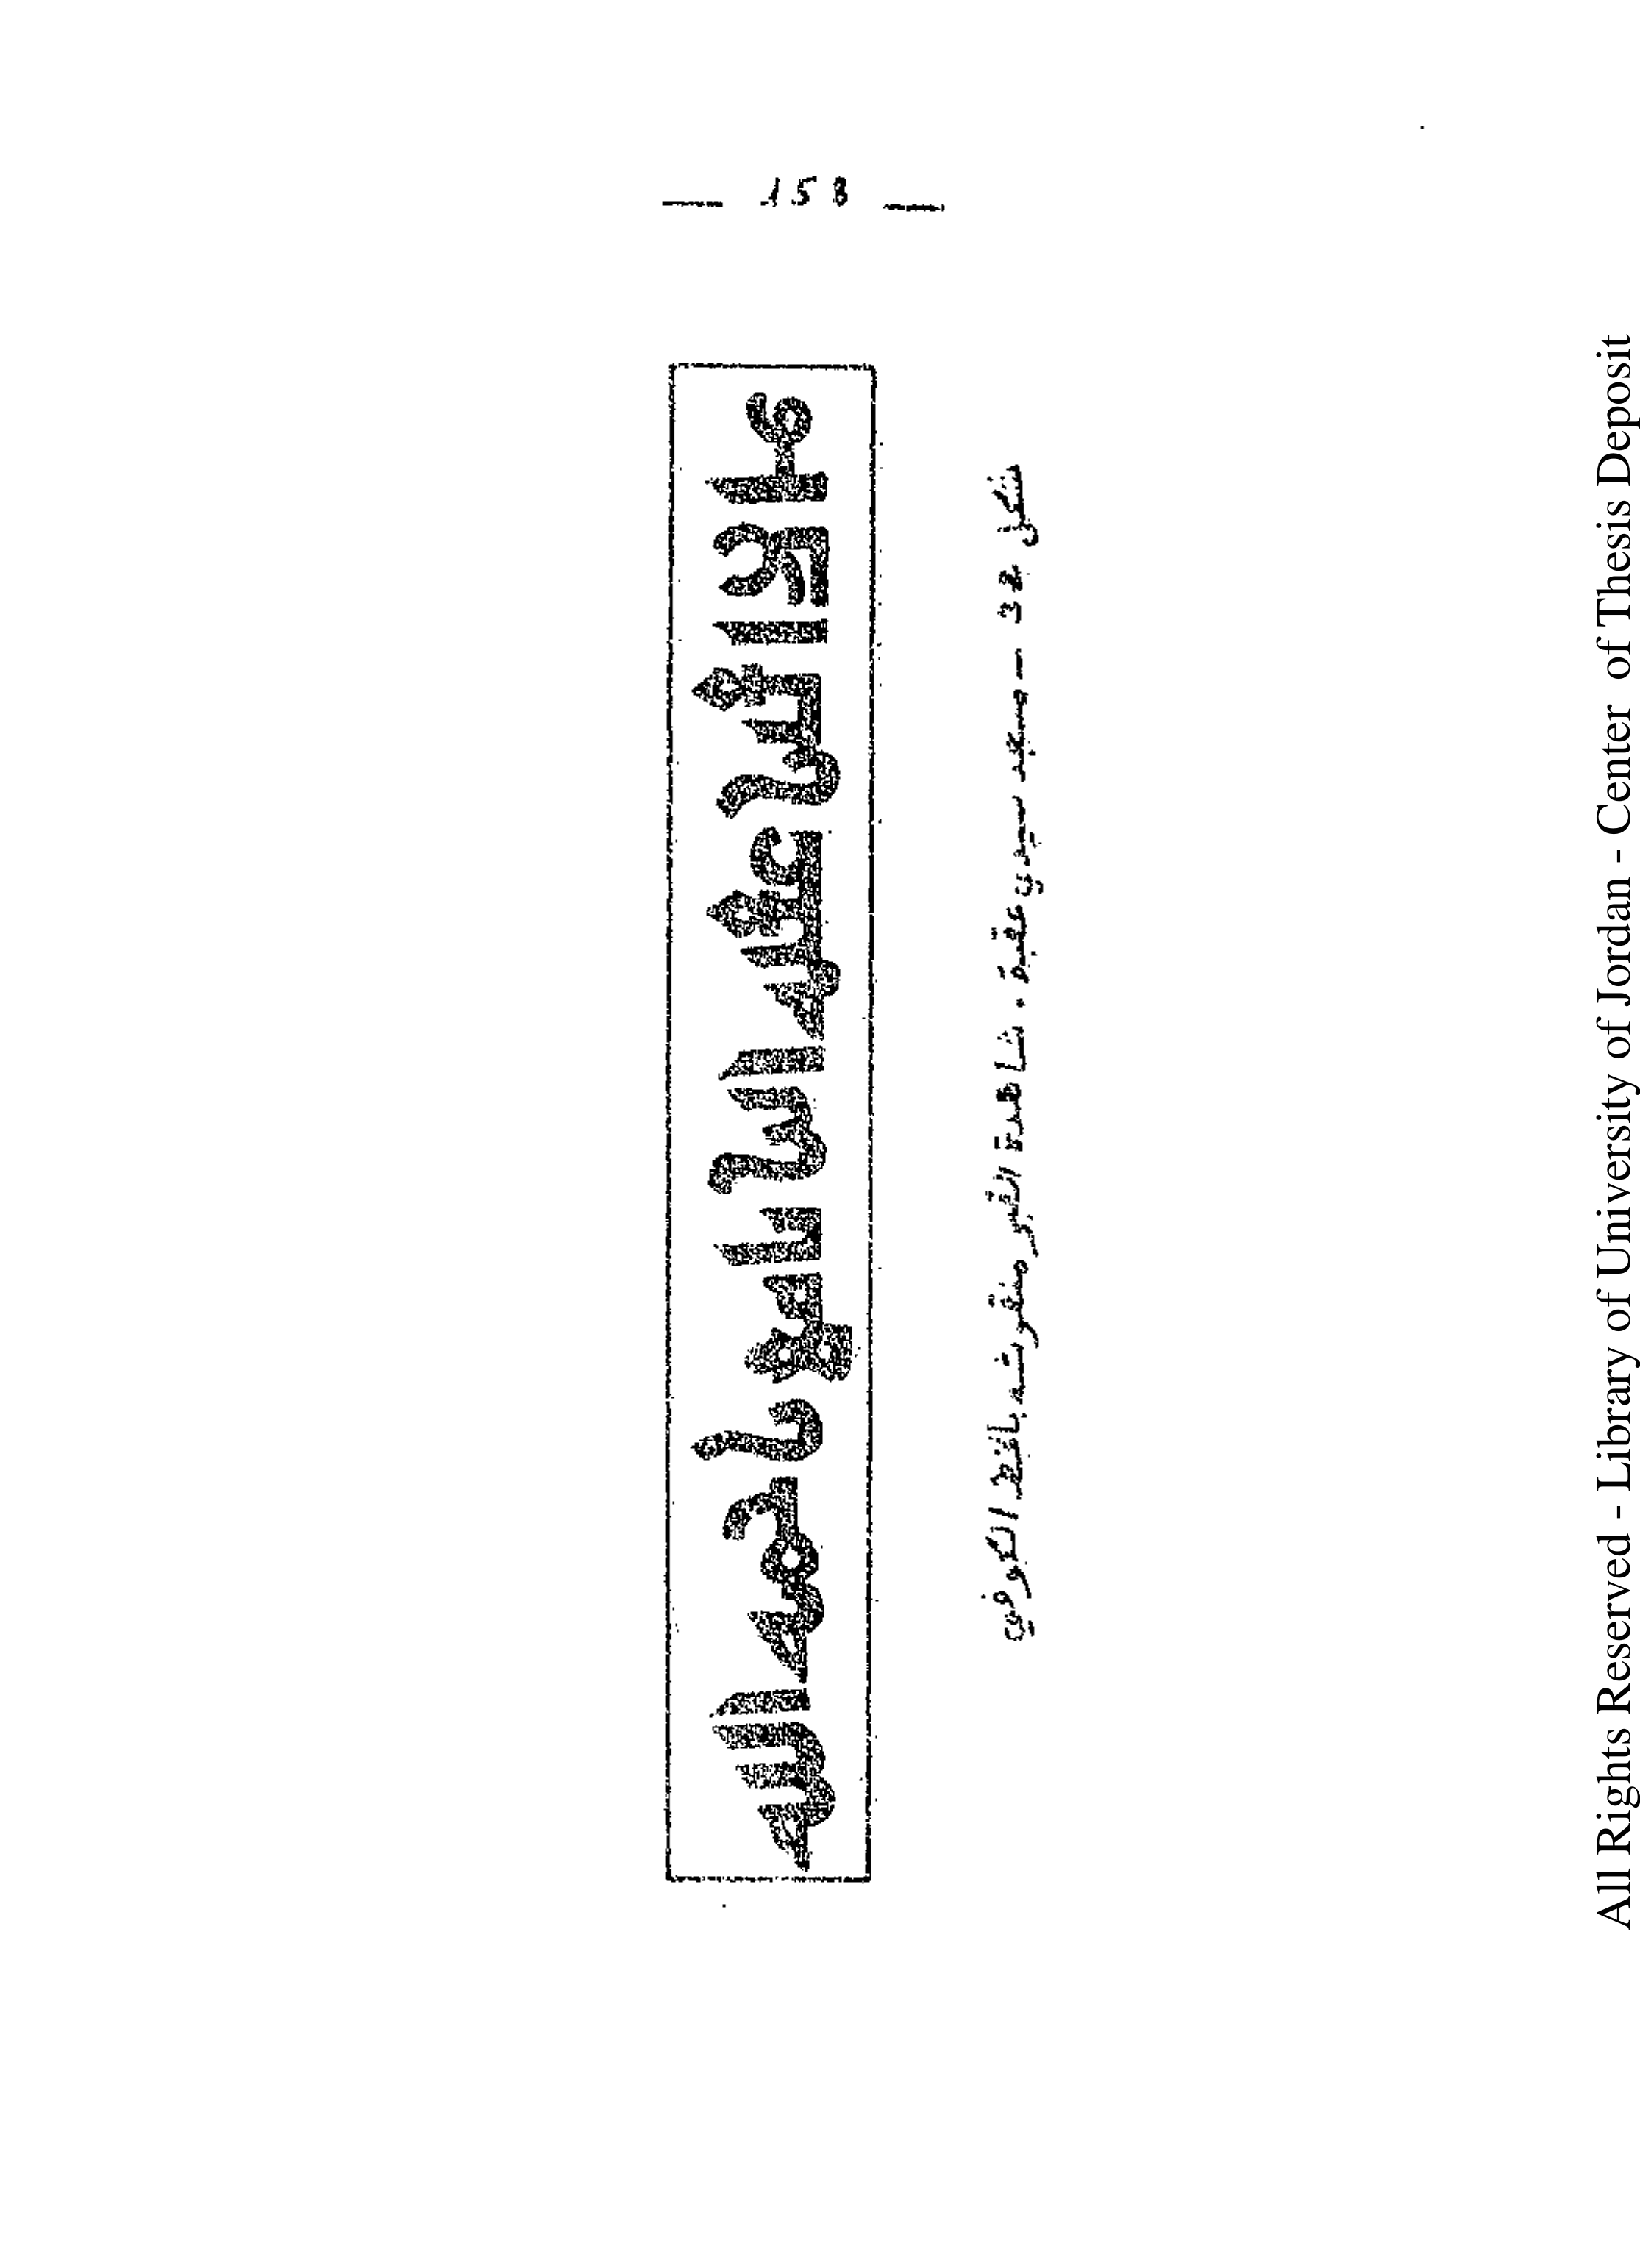 — 158 —
هذا قبر عقبة ابن نافع رحمه الله
شكل 32 - مسجد سيدي عقبة . شاهدة القبر منقوشة بالخط الكوفي
All Rights Reserved - Library of University of Jordan - Center of Thesis Deposit